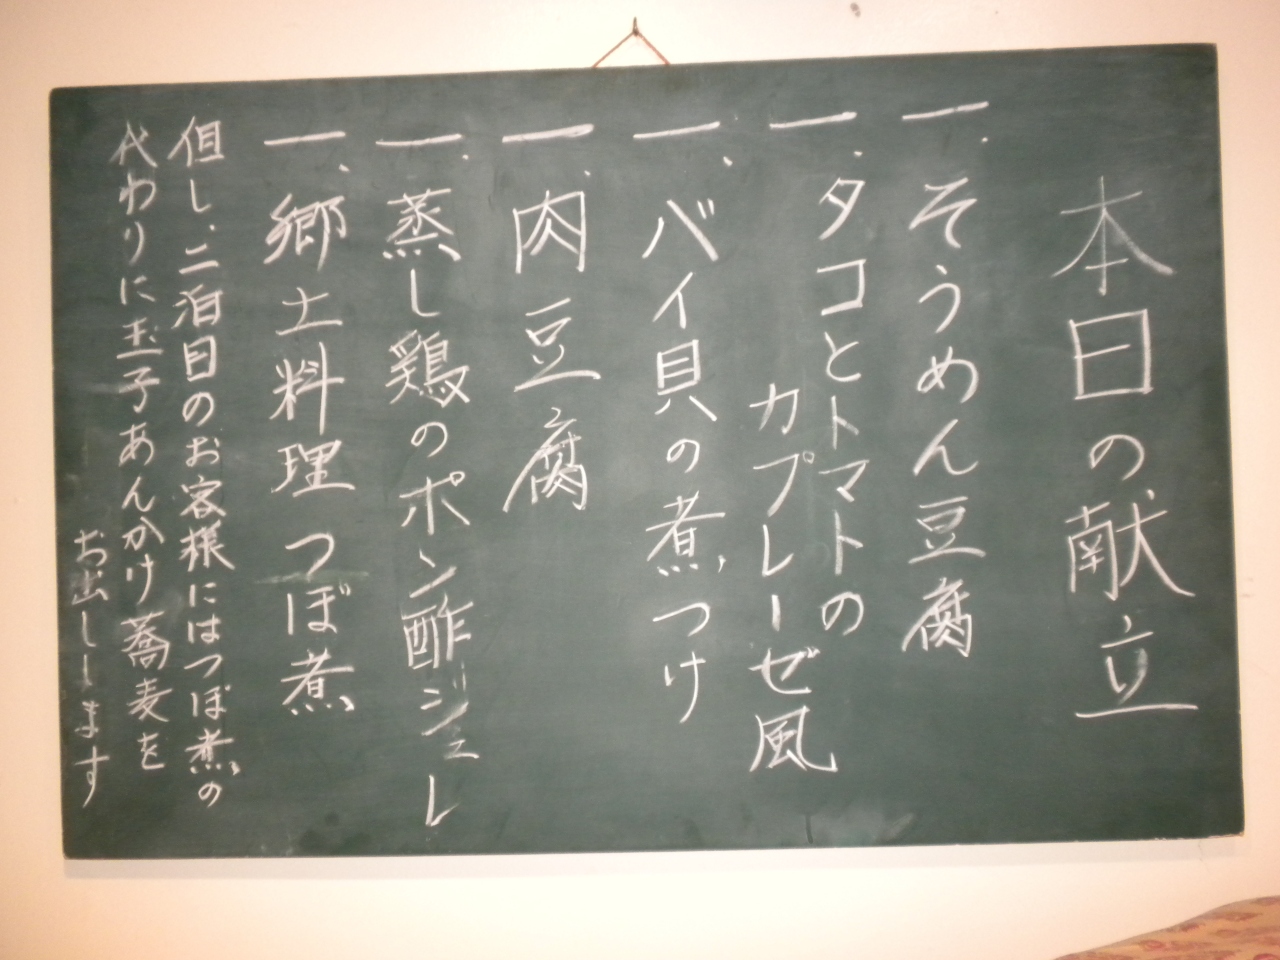 本日の献立
一、そうめん豆腐
一、タコとトマトの
カプレーゼ風
一、バイ貝の煮つけ
一、肉豆腐
一、蒸し鶏のポン酢ジュレ
一、郷土料理つぼ煮
但し、二泊目のお客様にはつぼ煮の
代わりに玉子あんかけ蕎麦を
お出しします